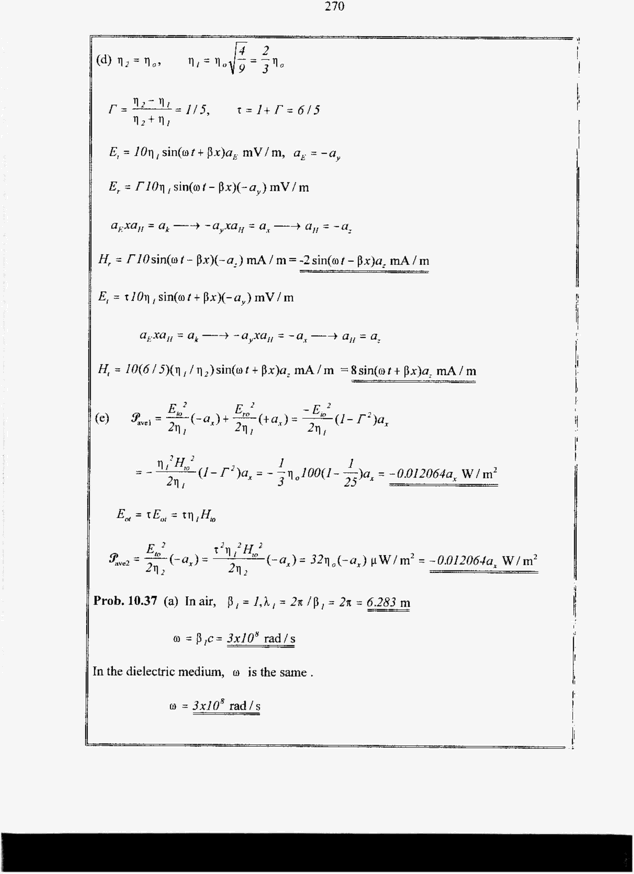 270
(d) η₂ = ηₒ, η₁ = ηₒ√(4/9) = (2/3)ηₒ
Γ = (η₂ - η₁)/(η₂ + η₁) = 1/5, τ = 1 + Γ = 6/5
Eᵢ = 10η₁ sin(ωt + βx)a_E mV/m, a_E = -a_y
E_r = Γ10η₁ sin(ωt - βx)(-a_y) mV/m
a_E x a_H = a_k ⟶ -a_y x a_H = a_x ⟶ a_H = -a_z
H_r = Γ10 sin(ωt - βx)(-a_z) mA/m = -2 sin(ωt - βx)a_z mA/m
E_t = τ10η₁ sin(ωt + βx)(-a_y) mV/m
a_E x a_H = a_k ⟶ -a_y x a_H = -a_x ⟶ a_H = a_z
H_t = 10(6/5)(η₁/η₂) sin(ωt + βx)a_z mA/m = 8 sin(ωt + βx)a_z mA/m
(e) 𝒫_ave1 = E_io²/(2η₁) (-a_x) + E_ro²/(2η₁) (+a_x) = -E_io²/(2η₁) (1 - Γ²)a_x
= - η₁²H_io²/(2η₁) (1 - Γ²)a_x = - (1/3)ηₒ100(1 - 1/25)a_x = -0.012064a_x W/m²
E_ot = τE_ot = τη₁H_io
𝒫_ave2 = E_to²/(2η₂) (-a_x) = τ²η₁²H_io²/(2η₂) (-a_x) = 32ηₒ(-a_x) μW/m² = -0.012064a_x W/m²
Prob. 10.37 (a) In air, β₁ = 1, λ₁ = 2π/β₁ = 2π = 6.283 m
ω = β₁c = 3x10⁸ rad/s
In the dielectric medium, ω is the same .
ω = 3x10⁸ rad/s